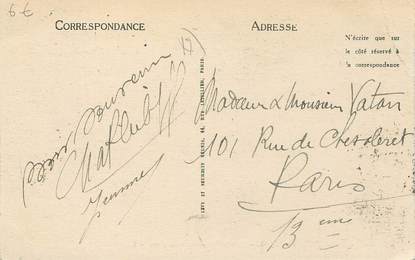 6€
CORRESPONDANCE
ADRESSE
N'écrire que sur
le côté réservé à
la correspondance
Bon Souvenir
Jeanne
LÉVY ET NEURDEIN RÉUNIS, 44, RUE LETELLIER, PARIS.
Madame & Monsieur Vatan
101 Rue de Chevaleret
Paris
13eme